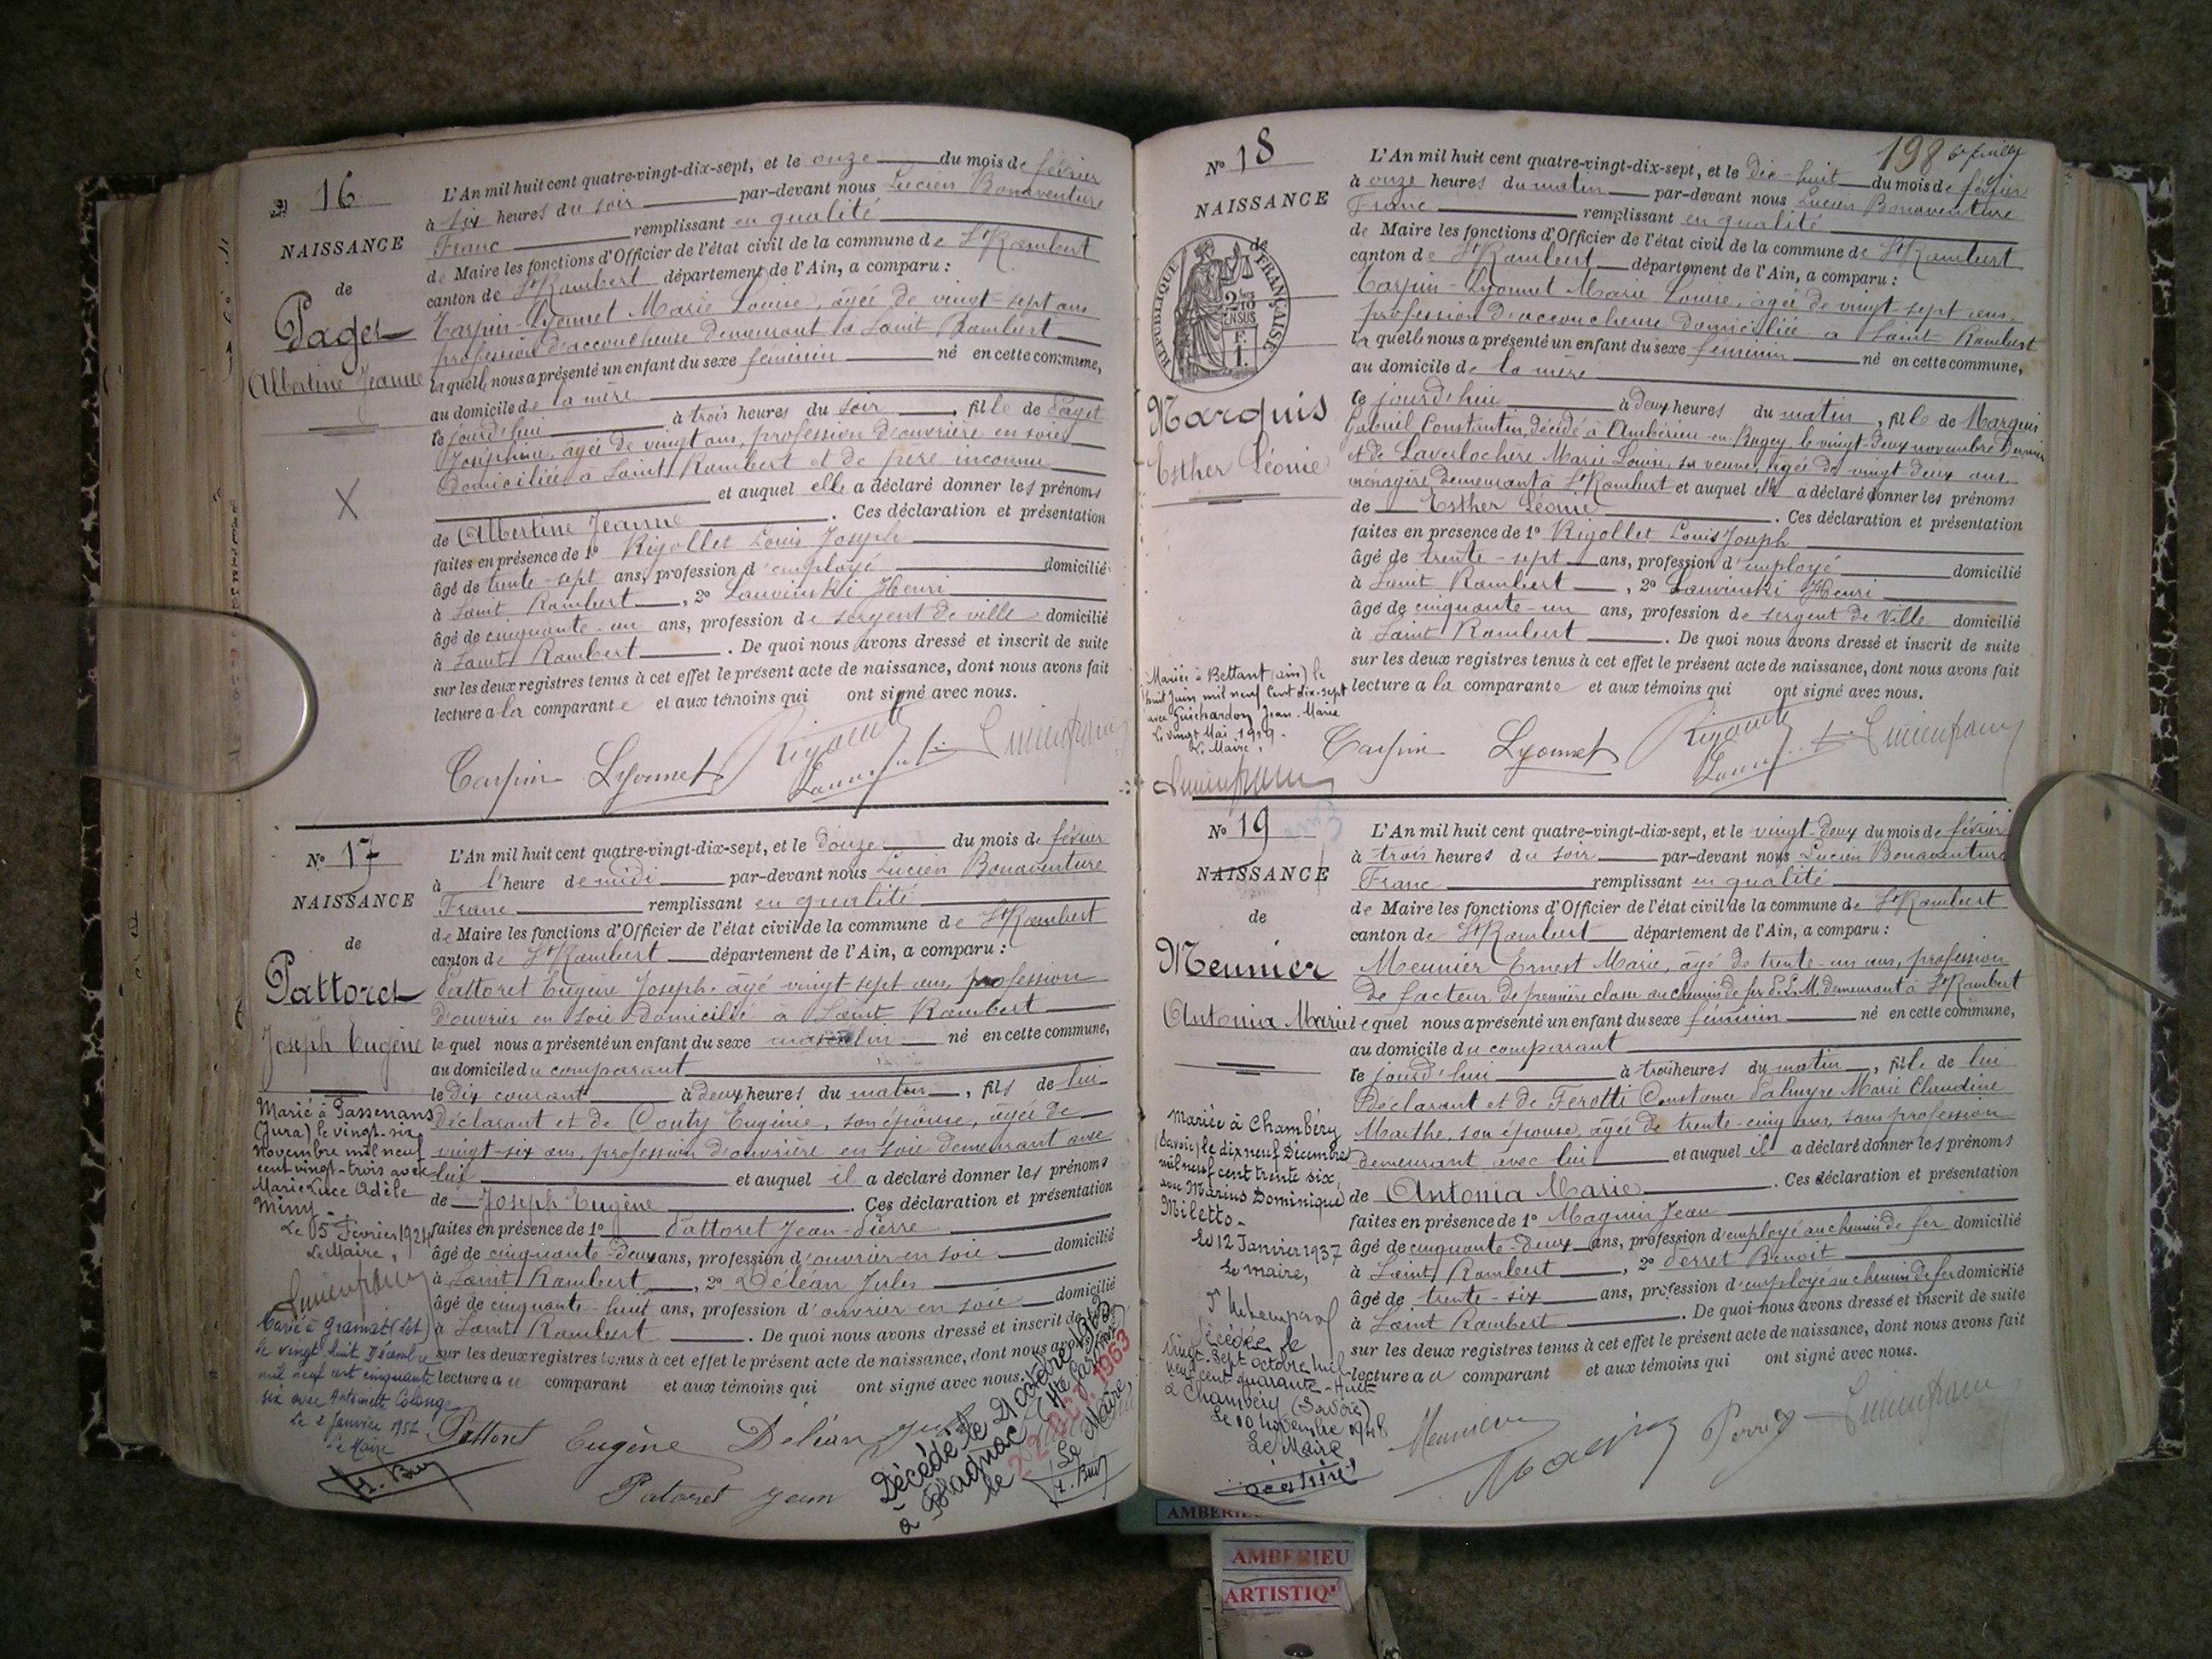 N° 16
NAISSANCE
de
Paget
Albertine Jeanne
L'An mil huit cent quatre-vingt-dix-sept, et le onze du mois de février
à six heures du soir par-devant nous Lucien Bonaventure
Franc remplissant en qualité
de Maire les fonctions d'Officier de l'état civil de la commune de St Rambert
canton de St Rambert département de l'Ain, a comparu :
Carpin-Lyonnet Marie Louise, âgée de vingt-sept ans
profession d'accoucheuse demeurant à Saint Rambert
laquelle nous a présenté un enfant du sexe féminin né en cette commune,
au domicile de la mère
le jourd'hui à trois heures du soir, fille de Paget
Joséphine, âgée de vingt ans, profession d'ouvrière en soies
domiciliée à Saint Rambert et de père inconnu
et auquel elle a déclaré donner les prénoms
de Albertine Jeanne. Ces déclaration et présentation
faites en présence de 1° Rigollet Louis Joseph
âgé de trente-sept ans, profession d'employé domicilié
à Saint Rambert, 2° Lauvinski Henri
âgé de cinquante-un ans, profession de sergent de ville domicilié
à Saint Rambert. De quoi nous avons dressé et inscrit de suite
sur les deux registres tenus à cet effet le présent acte de naissance, dont nous avons fait
lecture a la comparante et aux témoins qui ont signé avec nous.
Carpin Lyonnet
N° 17
NAISSANCE
de
Pattoret
Joseph Eugène
L'An mil huit cent quatre-vingt-dix-sept, et le douze du mois de février
à l'heure de midi par-devant nous Lucien Bonaventure
Franc remplissant en qualité
de Maire les fonctions d'Officier de l'état civil de la commune de St Rambert
canton de St Rambert département de l'Ain, a comparu :
Pattoret Eugène Joseph âgé vingt sept ans, profession
d'ouvrier en soie domicilié à Saint Rambert
lequel nous a présenté un enfant du sexe masculin né en cette commune,
au domicile du comparant
le dix courant à deux heures du matin, fils de lui
déclarant et de Couty Eugénie, son épouse, âgée de
vingt-six ans, profession d'ouvrière en soie demeurant avec
lui et auquel il a déclaré donner les prénoms
de Joseph Eugène. Ces déclaration et présentation
faites en présence de 1° Pattoret Jean-Pierre
âgé de cinquante-deux ans, profession d'ouvrier en soie domicilié
à Saint Rambert, 2° Déléan Jules
âgé de cinquante-huit ans, profession d'ouvrier en soie domicilié
à Saint Rambert. De quoi nous avons dressé et inscrit de suite
sur les deux registres tenus à cet effet le présent acte de naissance, dont nous avons fait
lecture au comparant et aux témoins qui ont signé avec nous.
Pattoret Eugène Deléan
Patoret Jean
Marié à Passenans
(Jura) le vingt-six
novembre mil neuf
cent vingt-trois avec
Marie Luce Adèle
Miny.
Le 5 Février 1924
Le Maire,
Marié à Gramat (Lot)
le vingt huit Décembre
mil neuf cent cinquante
six avec Antoinette Colange
Le 2 Janvier 1957
Le Maire
H. Buy
Décédé le 21 octobre 1963
à Blagnac (Hte Garonne)
le 22 OCT. 1963
Le Maire,
198
N° 18
NAISSANCE
de
RÉPUBLIQUE FRANÇAISE
Marquis
Esther Léonie
L'An mil huit cent quatre-vingt-dix-sept, et le dix-huit du mois de février
à onze heures du matin par-devant nous Lucien Bonaventure
Franc remplissant en qualité
de Maire les fonctions d'Officier de l'état civil de la commune de St Rambert
canton de St Rambert département de l'Ain, a comparu :
Carpin-Lyonnet Marie Louise, âgée de vingt-sept ans,
profession d'accoucheuse domiciliée à Saint Rambert
laquelle nous a présenté un enfant du sexe féminin né en cette commune,
au domicile de la mère
le jourd'hui à deux heures du matin, fille de Marquis
Gabriel Constantin, décédé à Ambérieu-en-Bugey le vingt-deux novembre dernier
et de Laverlochère Marie Louise, sa veuve, âgée de vingt deux ans
ménagère demeurant à St Rambert et auquel elle a déclaré donner les prénoms
de Esther Léonie. Ces déclaration et présentation
faites en présence de 1° Rigollet Louis Joseph
âgé de trente-sept ans, profession d'employé domicilié
à Saint Rambert, 2° Lauvinski Henri
âgé de cinquante-un ans, profession de sergent de Ville domicilié
à Saint Rambert. De quoi nous avons dressé et inscrit de suite
sur les deux registres tenus à cet effet le présent acte de naissance, dont nous avons fait
lecture a la comparante et aux témoins qui ont signé avec nous.
Carpin Lyonnet
Mariée à Bettant (ain) le
huit Juin mil neuf Cent dix-sept
avec Guichardon Jean-Marie
Le vingt Mai 1919.
Le Maire,
N° 19
NAISSANCE
de
Meunier
Antonia Marie
L'An mil huit cent quatre-vingt-dix-sept, et le vingt-deux du mois de février
à trois heures du soir par-devant nous Lucien Bonaventure
Franc remplissant en qualité
de Maire les fonctions d'Officier de l'état civil de la commune de St Rambert
canton de St Rambert département de l'Ain, a comparu :
Meunier Ernest Marie, âgé de trente-un ans, profession
de facteur de première classe au chemin de fer P.L.M. demeurant à St Rambert
lequel nous a présenté un enfant du sexe féminin né en cette commune,
au domicile du comparant
le jourd'hui à trois heures du matin, fille de lui
déclarant et de Ferotti Constance Palmyre Marie Claudine
Marthe, son épouse, âgée de trente-cinq ans, sans profession
demeurant avec lui et auquel il a déclaré donner les prénoms
de Antonia Marie. Ces déclaration et présentation
faites en présence de 1° Magnin Jean
âgé de cinquante-deux ans, profession d'employé au chemin de fer domicilié
à Saint Rambert, 2° Perret Benoit
âgé de trente-six ans, profession d'employé au chemin de fer domicilié
à Saint Rambert. De quoi nous avons dressé et inscrit de suite
sur les deux registres tenus à cet effet le présent acte de naissance, dont nous avons fait
lecture au comparant et aux témoins qui ont signé avec nous.
Meunier Magnin Perret
Mariée à Chambéry
(Savoie) le dix neuf Décembre
mil neuf cent trente six,
avec Marius Dominique
Miletto.
Le 12 Janvier 1937
Le maire,
Décédée le
vingt-sept octobre mil
neuf cent quarante-Huit
à Chambéry (Savoie)
Le 10 novembre 1948
Le Maire
AMBERIEU
ARTISTIQ